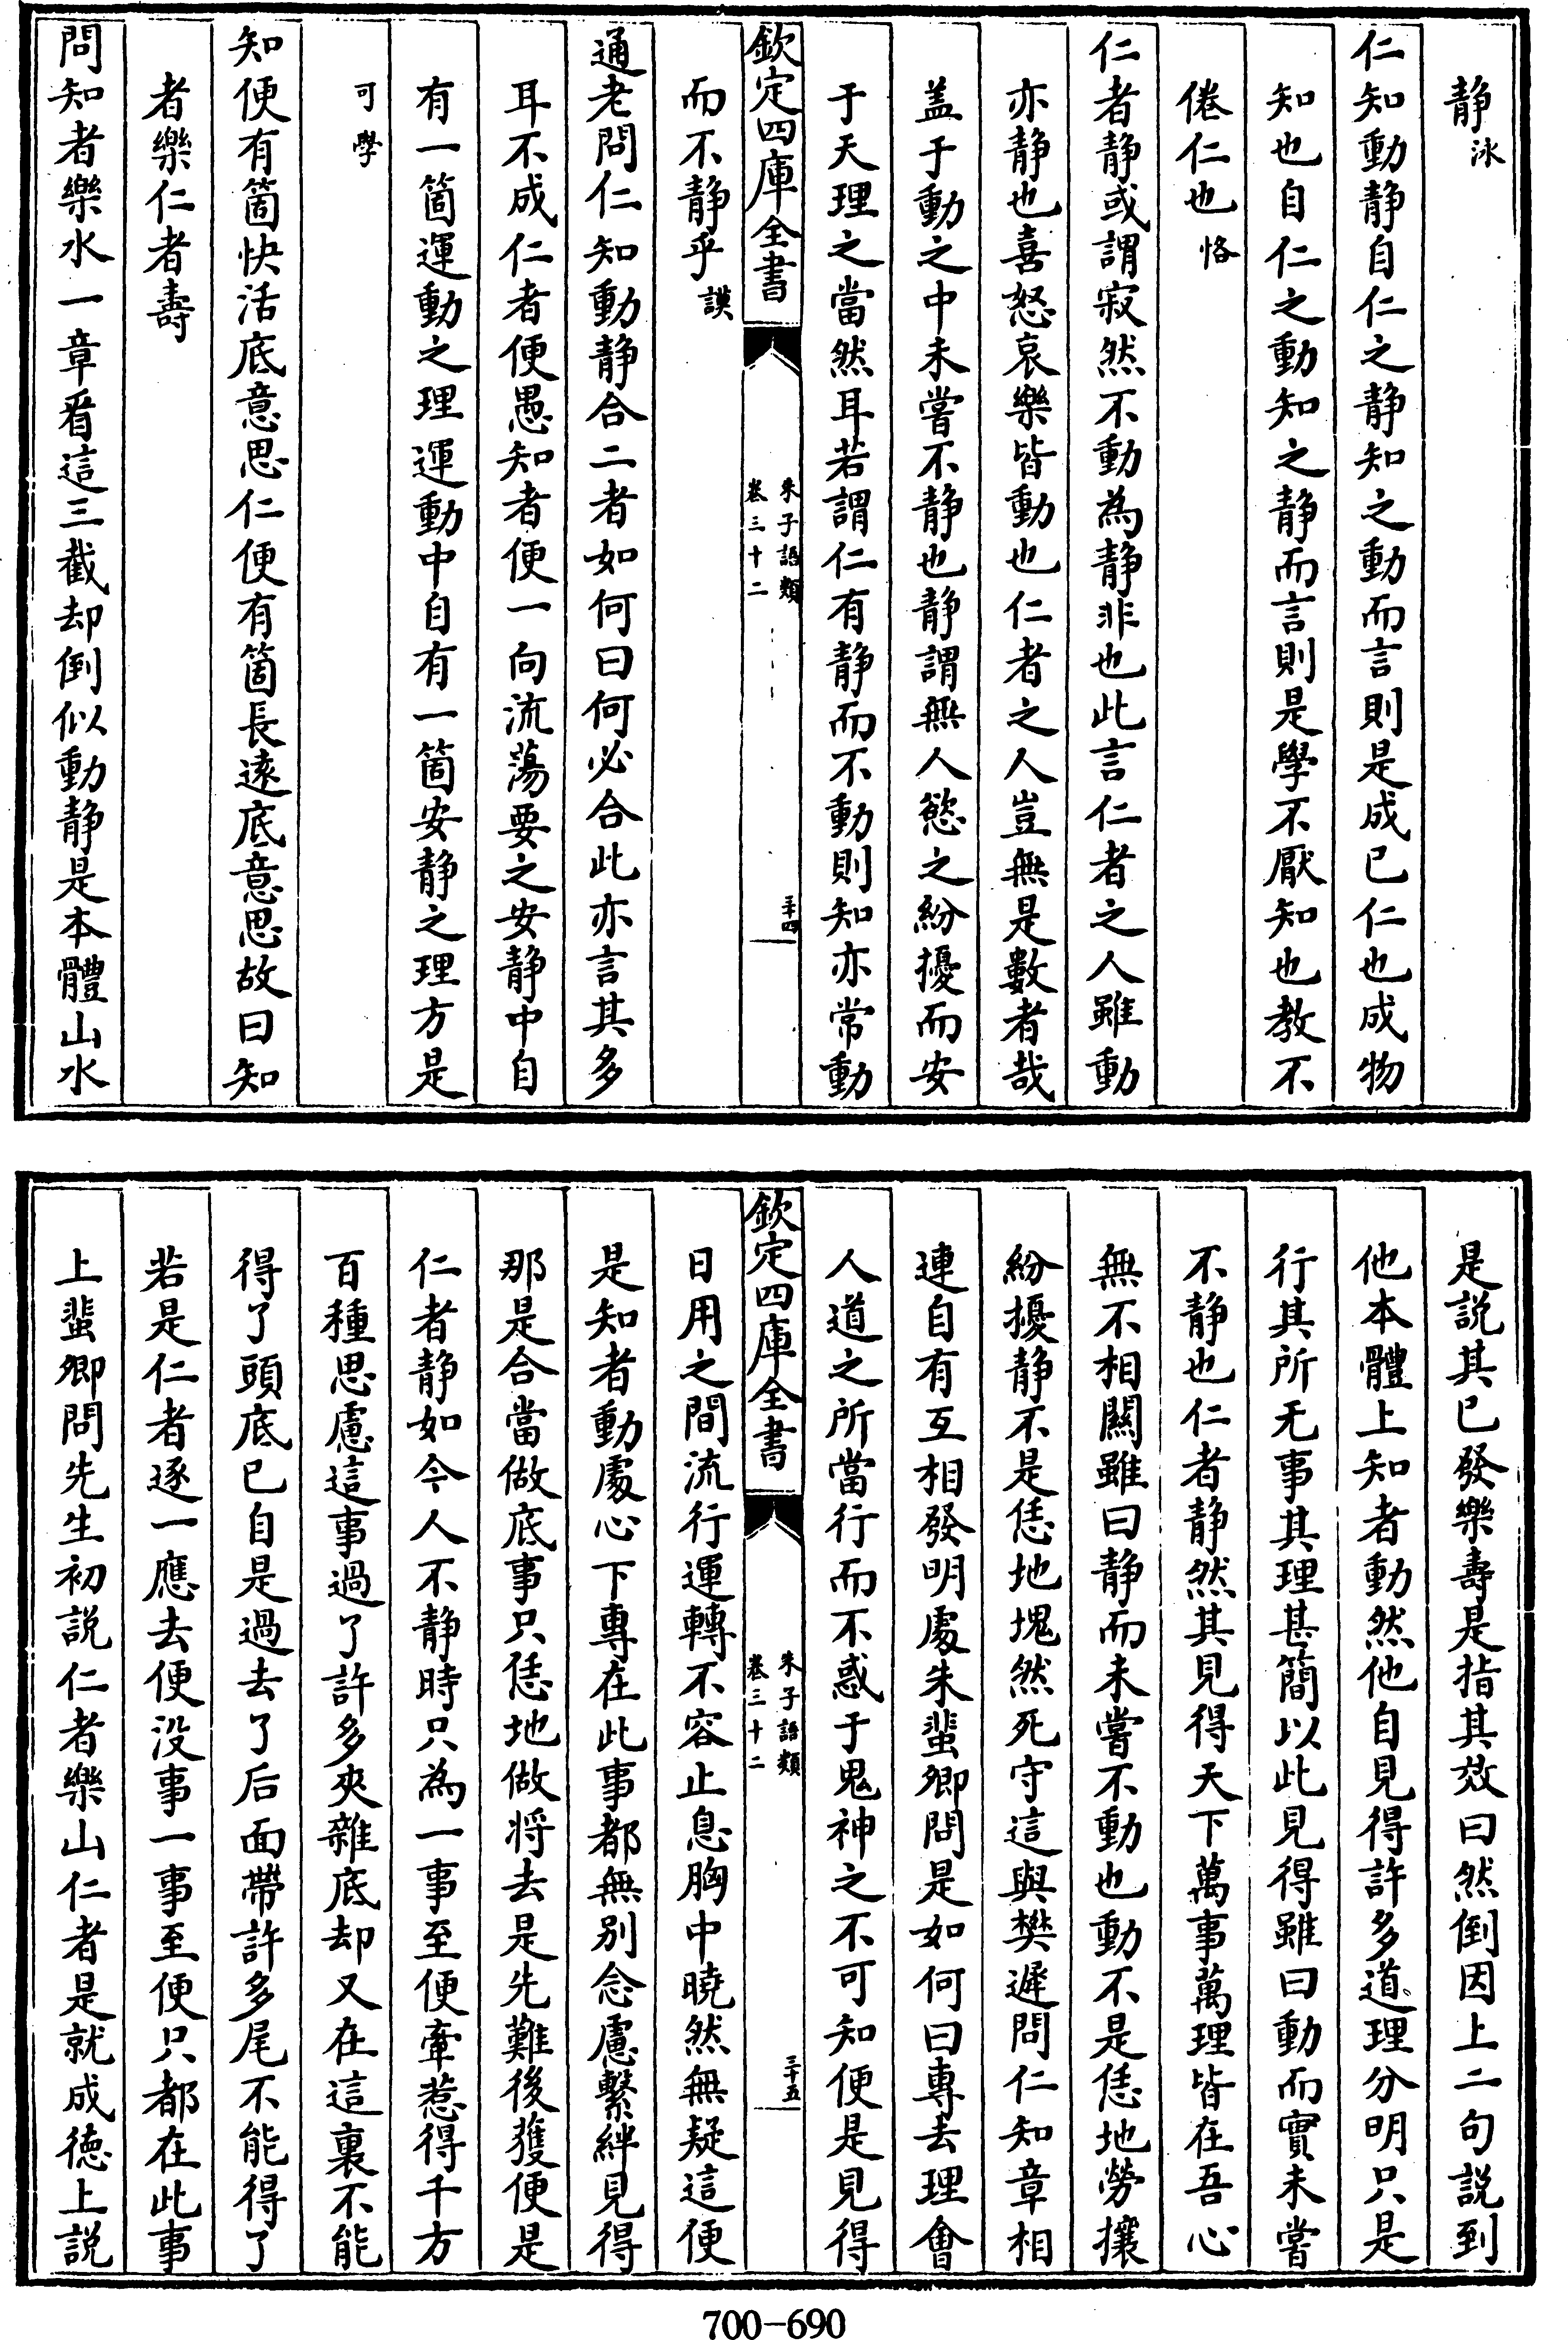 静泳
仁知動静自仁之静知之動而言則是成已仁也成物
知也自仁之動知之静而言則是學不厭知也教不
倦仁也恪
仁者静或謂寂然不動為静非也此言仁者之人雖動
亦静也喜怒哀樂皆動也仁者之人豈無是數者哉
盖于動之中未嘗不静也静謂無人慾之紛擾而安
于天理之當然耳若謂仁有静而不動則知亦常動
欽定四庫全書
朱子語類
卷三十二
三十四
而不静乎謨
通老問仁知動静合二者如何曰何必合此亦言其多
耳不成仁者便愚知者便一向流蕩要之安静中自
有一箇運動之理運動中自有一箇安静之理方是
可學
知便有箇快活底意思仁便有箇長逺底意思故曰知
者樂仁者壽
問知者樂水一章看這三截却倒似動静是本體山水
是説其已發樂壽是指其效曰然倒因上二句説到
他本體上知者動然他自見得許多道理分明只是
行其所无事其理甚簡以此見得雖曰動而實未嘗
不静也仁者静然其見得天下萬事萬理皆在吾心
無不相關雖曰静而未嘗不動也動不是恁地勞攘
紛擾静不是恁地塊然死守這與樊遲問仁知章相
連自有互相發明處朱蜚卿問是如何曰專去理會
人道之所當行而不惑于鬼神之不可知便是見得
欽定四庫全書
朱子語類
卷三十二
三十五
日用之間流行運轉不容止息胸中曉然無疑這便
是知者動處心下專在此事都無别念慮繫絆見得
那是合當做底事只恁地做将去是先難後獲便是
仁者静如今人不静時只為一事至便牽惹得千方
百種思慮這事過了許多夾雜底却又在這裏不能
得了頭底已自是過去了后面帶許多尾不能得了
若是仁者逐一應去便没事一事至便只都在此事
上蜚卿問先生初説仁者樂山仁者是就成徳上説
700-690